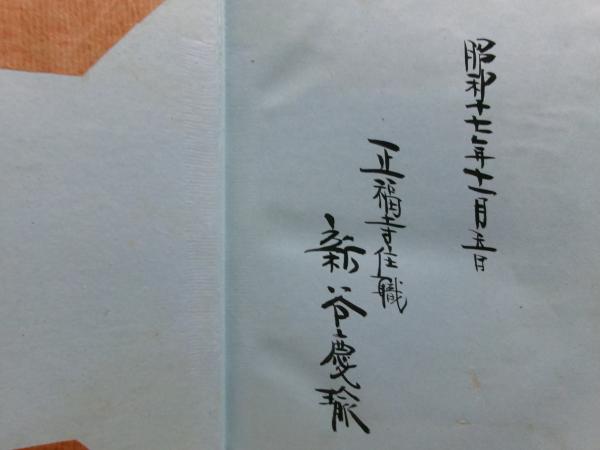 昭和十七年十一月五日
正福寺住職
新谷慶瑜